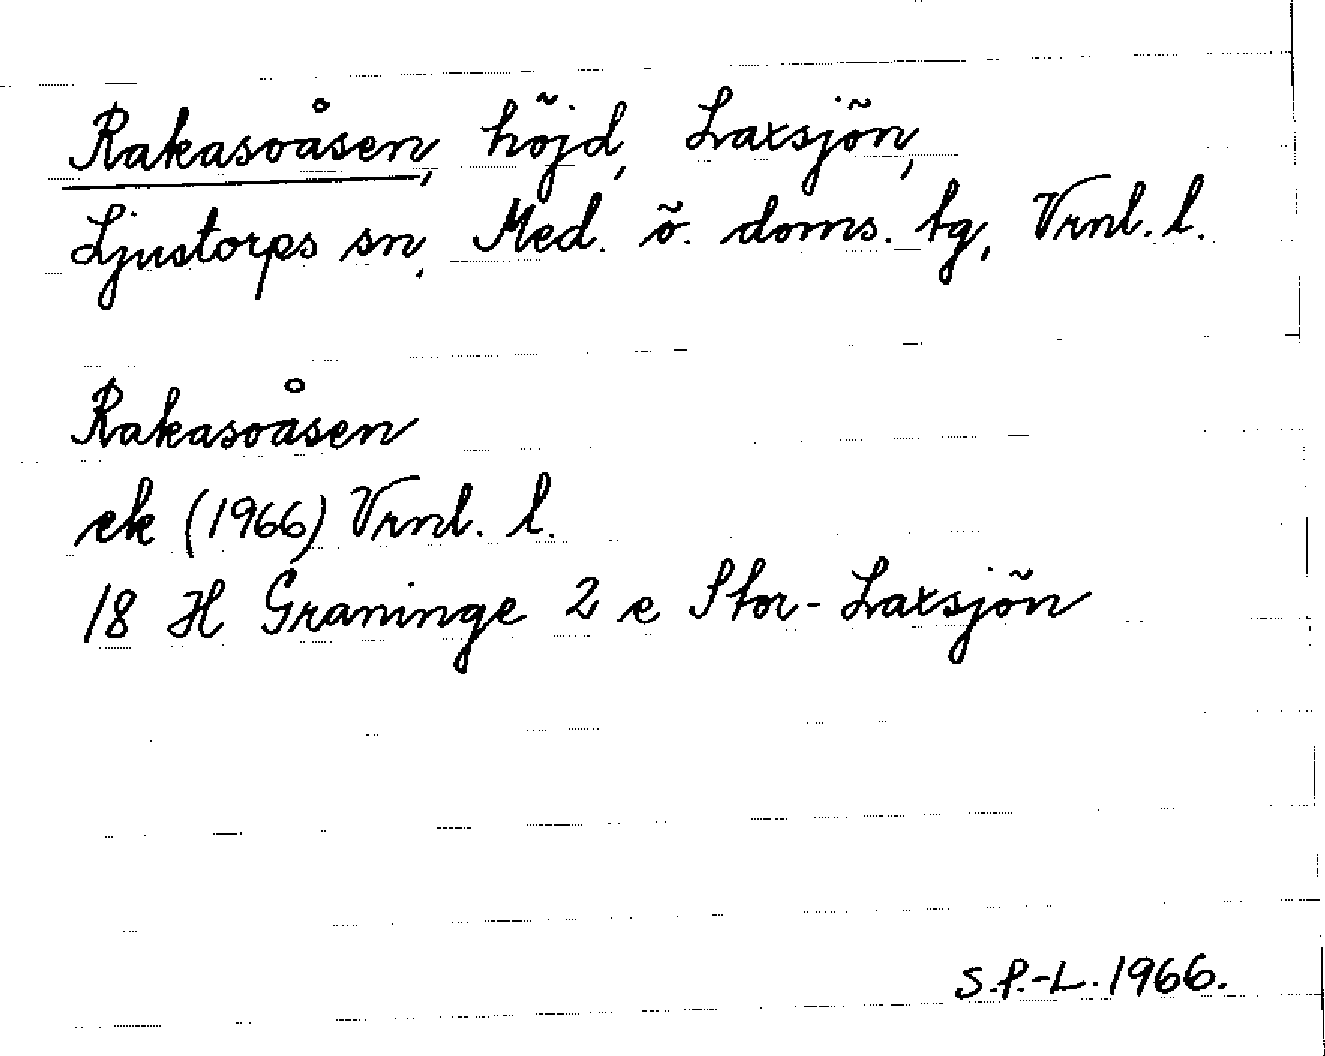 Rakasoåsen, höjd, Laxsjön,
Ljustorps sn, Med. ö. doms. tg, Vrnl. l.
Rakasoåsen
ek (1966) Vrnl. l.
18 H Graninge 2 e Stor-Laxsjön
S.P.-L. 1966.